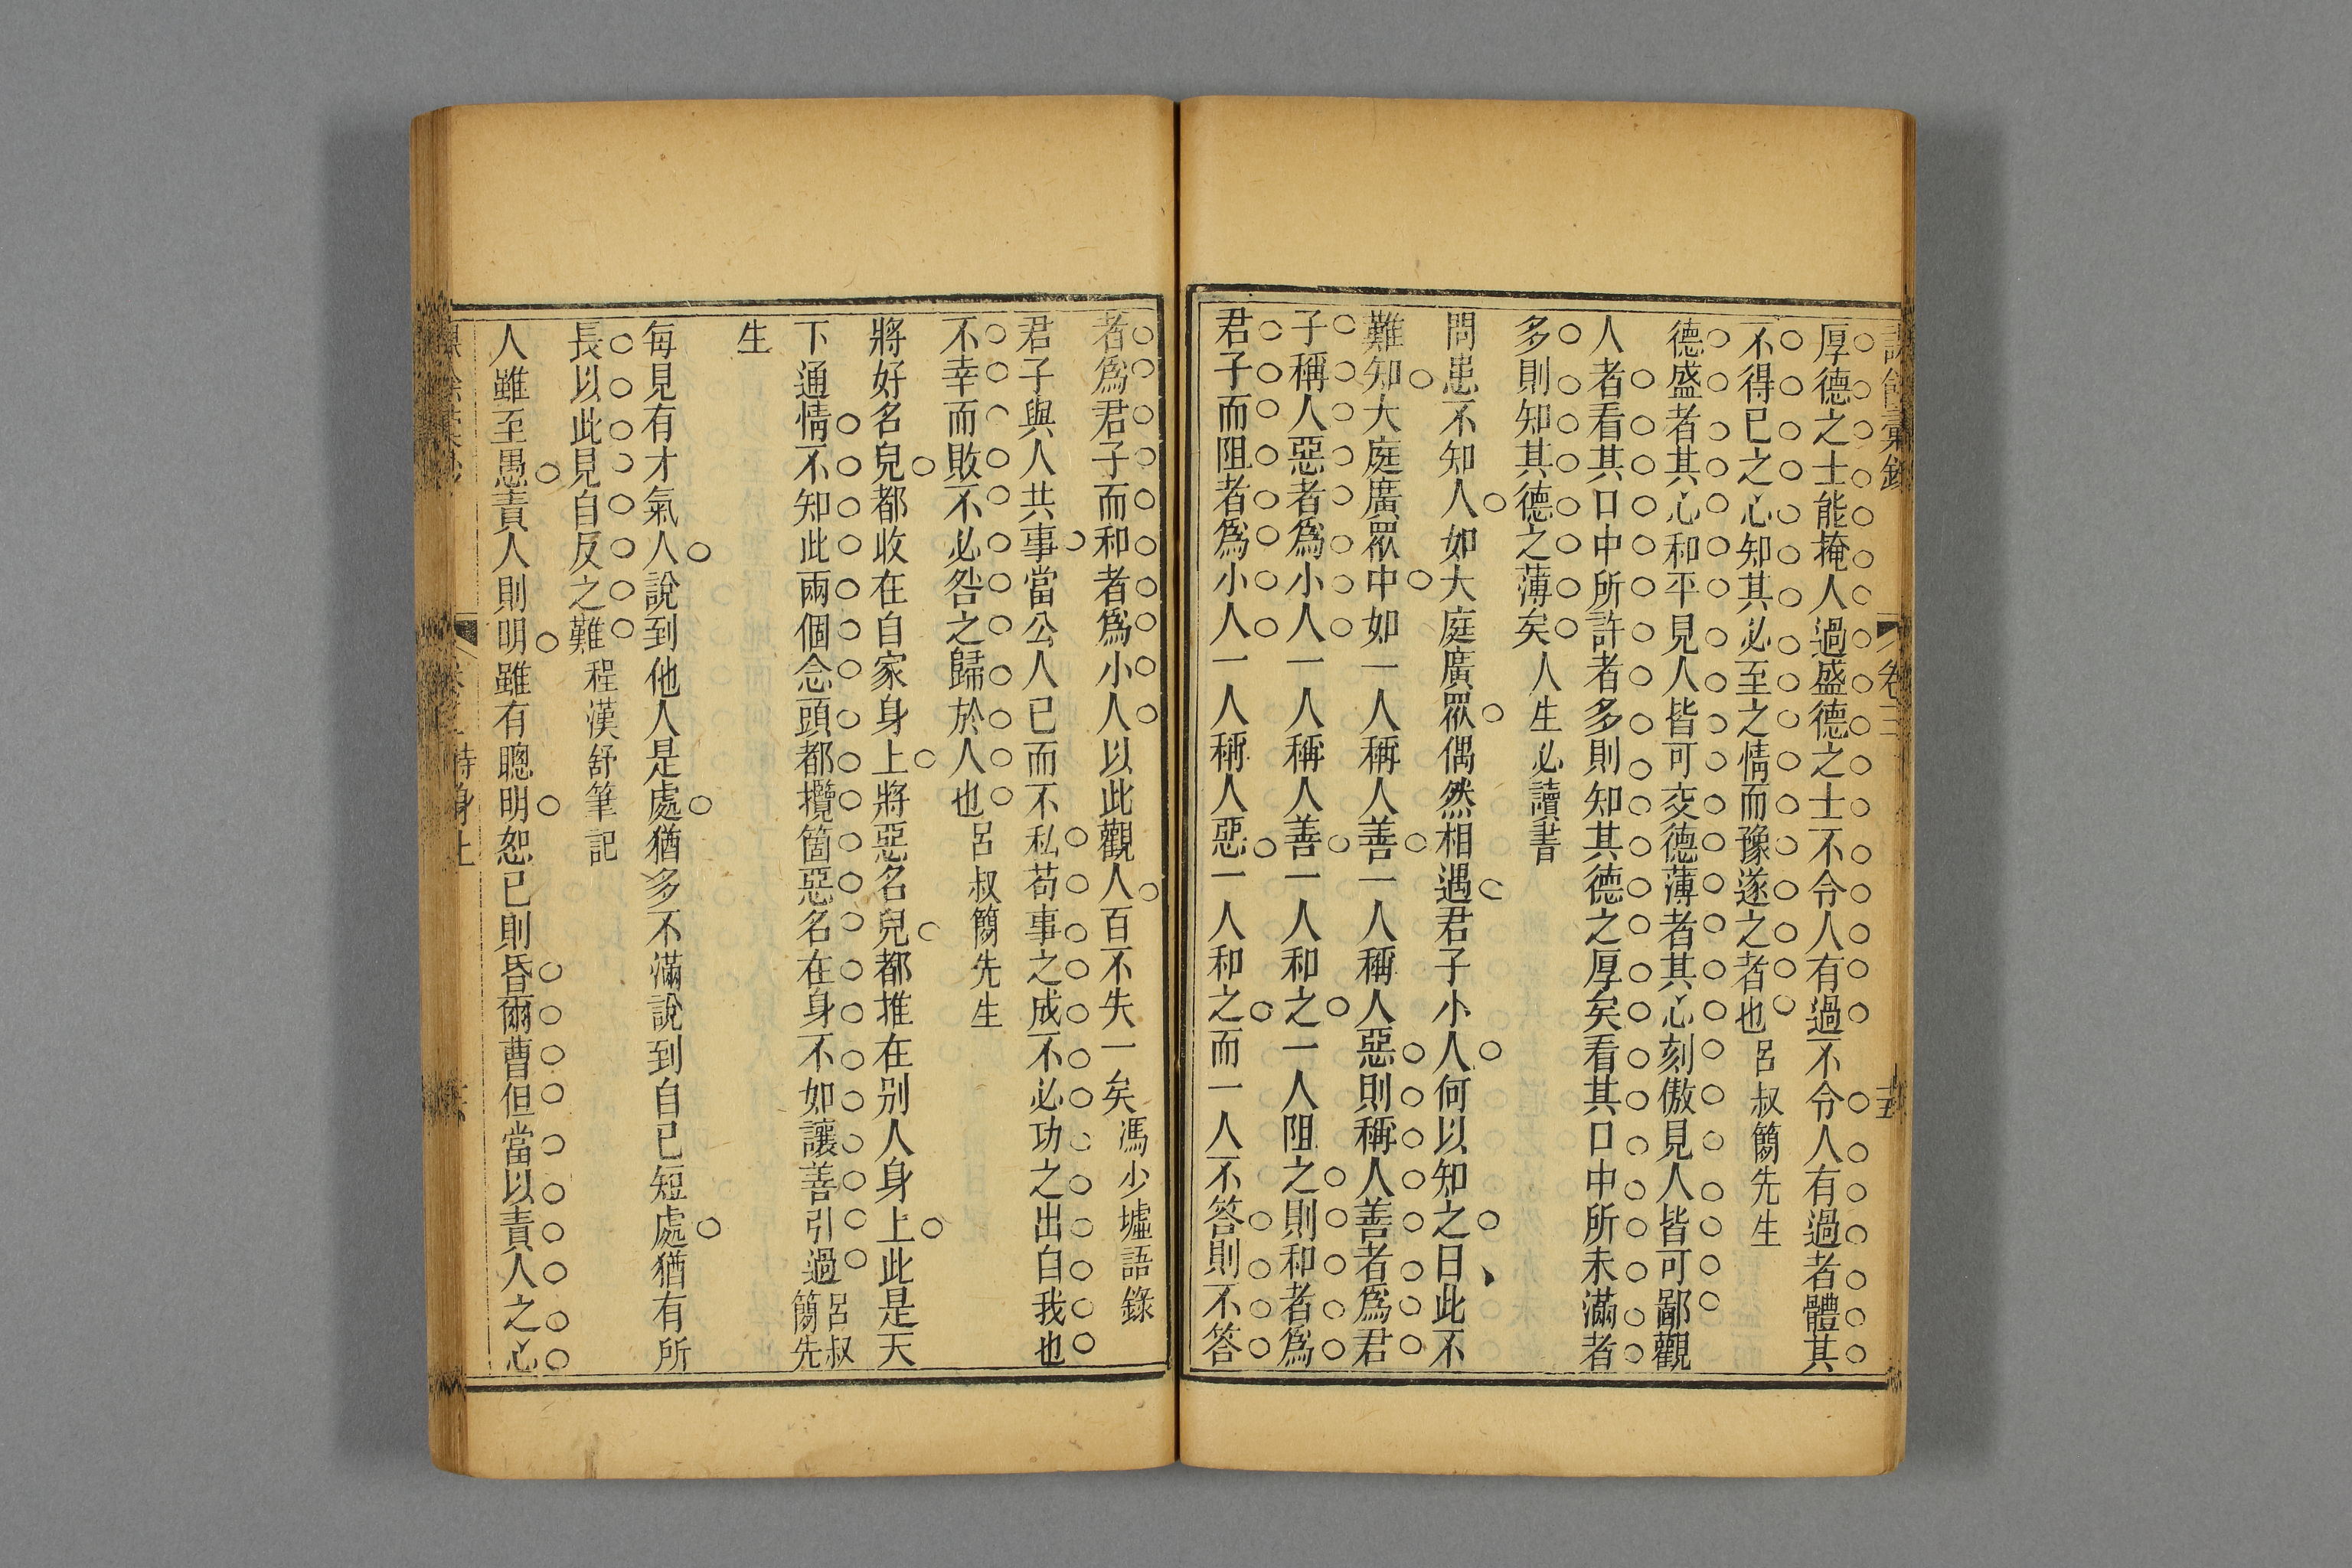 課餘彙鈔
卷三
厚德之士能掩人過盛德之士不令人有過不令人有過者體其
不得已之心知其必至之情而豫遂之者也呂叔簡先生
德盛者其心和平見人皆可交德薄者其心刻傲見人皆可鄙觀
人者看其口中所許者多則知其德之厚矣看其口中所未滿者
多則知其德之薄矣人生必讀書
問患不知人如大庭廣眾偶然相遇君子小人何以知之曰此不
難知大庭廣眾中如一人稱人善一人稱人惡則稱人善者為君
子稱人惡者為小人一人稱人善一人和之一人阻之則和者為
君子而阻者為小人一人稱人惡一人和之而一人不答則不答
者為君子而和者為小人以此觀人百不失一矣馮少墟語錄
君子與人共事當公人己而不私苟事之成不必功之出自我也
不幸而敗不必咎之歸於人也呂叔簡先生
將好名兒都收在自家身上將惡名兒都推在別人身上此是天
下通情不知此兩個念頭都攬箇惡名在身不如讓善引過呂叔簡先
生
每見有才氣人說到他人是處猶多不滿說到自己短處猶有所
長以此見自反之難程漢舒筆記
人雖至愚責人則明雖有聰明恕己則昏爾曹但當以責人之心
持身上